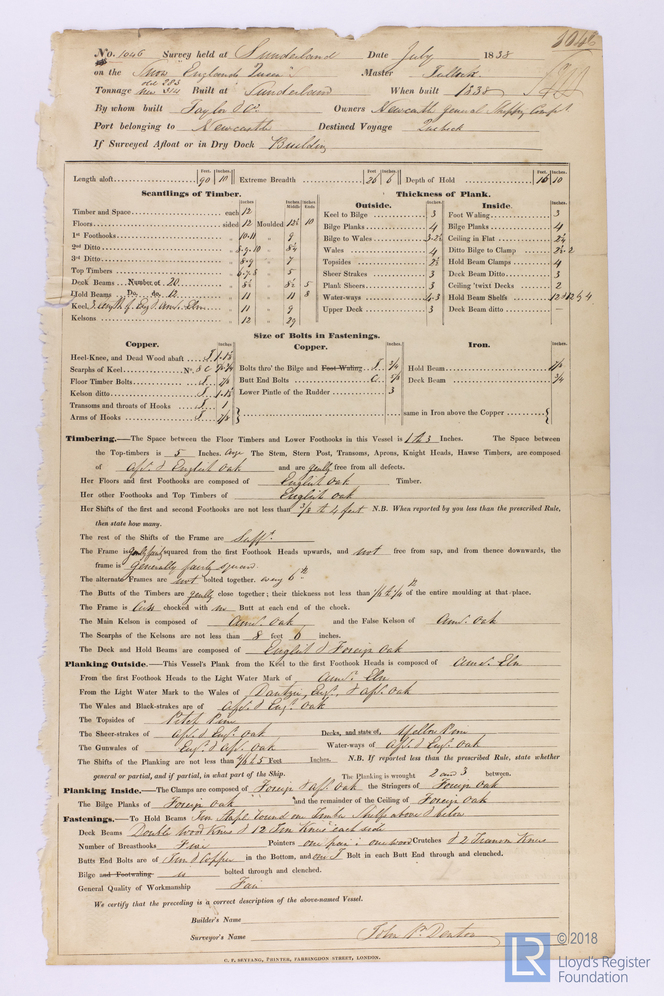 3046
No. 1046 Survey held at Sunderland Date July 1838
on the Snow "Englands Queen" Master
Tonnage old 283 new 314 Built at Sunderland When built 1838
By whom built Taylor & Co. Owners Newcastle General Shipping Comp
Port belonging to Newcastle Destined Voyage Quebeck
If Surveyed Afloat or in Dry Dock Building
Length aloft Feet. 90 Inches. 10 Extreme Breadth Feet 26 Inches. 6 Depth of Hold Feet. 16 Inches. 10
Scantlings of Timber.
Timber and Space each 12
Floors sided 12 Moulded 12½ 10
1st Foothooks 10-11 „ 9
2nd Ditto 8-9-10 „ 8½
3rd Ditto 8-9 „ 7
Top Timbers 6-7-8 „ 5
Deck Beams Number of 20 8½ „ 8½ 5
Hold Beams Do. No. 12 11 „ 11 8
Keel 11 „ 9
Kelsons 12 „ 29
Thickness of Plank.
Outside. Inches
Keel to Bilge 3
Bilge Planks 4
Bilge to Wales 3-2½
Wales 4
Topsides 2½
Sheer Strakes 3
Plank Sheers 3
Water-ways 4-3
Upper Deck 3
Inside. Inches
Foot Waling 3
Bilge Planks 4
Ceiling in Flat 2½
Ditto Bilge to Clamp 2½-2
Hold Beam Clamps 4
Deck Beam Ditto 3
Ceiling 'twixt Decks 2
Hold Beam Shelfs
Deck Beam ditto —
Size of Bolts in Fastenings.
Copper. Inches.
Heel-Knee, and Dead Wood abaft
Scarphs of Keel No. 8
Floor Timber Bolts
Kelson ditto
Transoms and throats of Hooks 1
Arms of Hooks 7/8
Copper. Inches.
Bolts thro' the Bilge and Foot Waling 3/4
Butt End Bolts
Lower Pintle of the Rudder 3
Iron. Inches.
Hold Beam 7/8
Deck Beam 3/4
same in Iron above the Copper
Timbering.—The Space between the Floor Timbers and Lower Foothooks in this Vessel is 1 to 3 Inches. The Space between
the Top-timbers is 5 Inches. The Stem, Stern Post, Transoms, Aprons, Knight Heads, Hawse Timbers, are composed
of Afn. & English Oak and are genly free from all defects.
Her Floors and first Foothooks are composed of English Oak Timber.
Her other Foothooks and Top Timbers of English Oak
Her Shifts of the first and second Foothooks are not less than 3/2 to 4 feet N.B. When reported by you less than the prescribed Rule,
then state how many.
The rest of the Shifts of the Frame are Suff.
The Frame is genly fairly squared from the first Foothook Heads upwards, and not free from sap, and from thence downwards, the
frame is generally fairly square.
The alternate Frames are not bolted together. every 6th
The Butts of the Timbers are genly close together; their thickness not less than of the entire moulding at that place.
The Frame is chocked with no Butt at each end of the chock.
The Main Kelson is composed of Amn. Oak and the False Kelson of Amn. Oak
The Scarphs of the Kelsons are not less than 8 feet 0 inches.
The Deck and Hold Beams are composed of English & Foreign Oak
Planking Outside.—This Vessel's Plank from the Keel to the first Foothook Heads is composed of Amn. Elm
From the first Foothook Heads to the Light Water Mark of Amn. Elm
From the Light Water Mark to the Wales of Dantzic, Eng. & Afn. Oak
The Wales and Black-strakes are of Afn. & Eng. Oak
The Topsides of
The Sheer-strakes of Afn. & Eng. Oak Decks, and state of, Yellow Pine
The Gunwales of Eng. & Afn. Oak Water-ways of Afn. & Eng. Oak
The Shifts of the Planking are not less than 4½ to 5 Feet Inches. N.B. If reported less than the prescribed Rule, state whether
general or partial, and if partial, in what part of the Ship. The Planking is wrought 2 and 3 between.
Planking Inside.—The Clamps are composed of Foreign & Afn. Oak the Stringers of Foreign Oak
The Bilge Planks of Foreign Oak and the remainder of the Ceiling of Foreign Oak
Fastenings.—To Hold Beams Iron Staple round on Timber Shelfs above & below
Deck Beams Double Wood Knees & 12 Iron Knees each side
Number of Breasthooks Five Pointers one pair & one wood Crutches & 2 Transom Knees
Butts End Bolts are of Iron & Copper in the Bottom, and one Bolt in each Butt End through and clenched.
Bilge and Footwaling is bolted through and clenched.
General Quality of Workmanship Fair
We certify that the preceding is a correct description of the above-named Vessel.
Builder's Name
Surveyor's Name John P. Denton
C. F. SEYFANG, PRINTER, FARRINGDON STREET, LONDON.
LR
© 2018
Lloyd's Register
Foundation